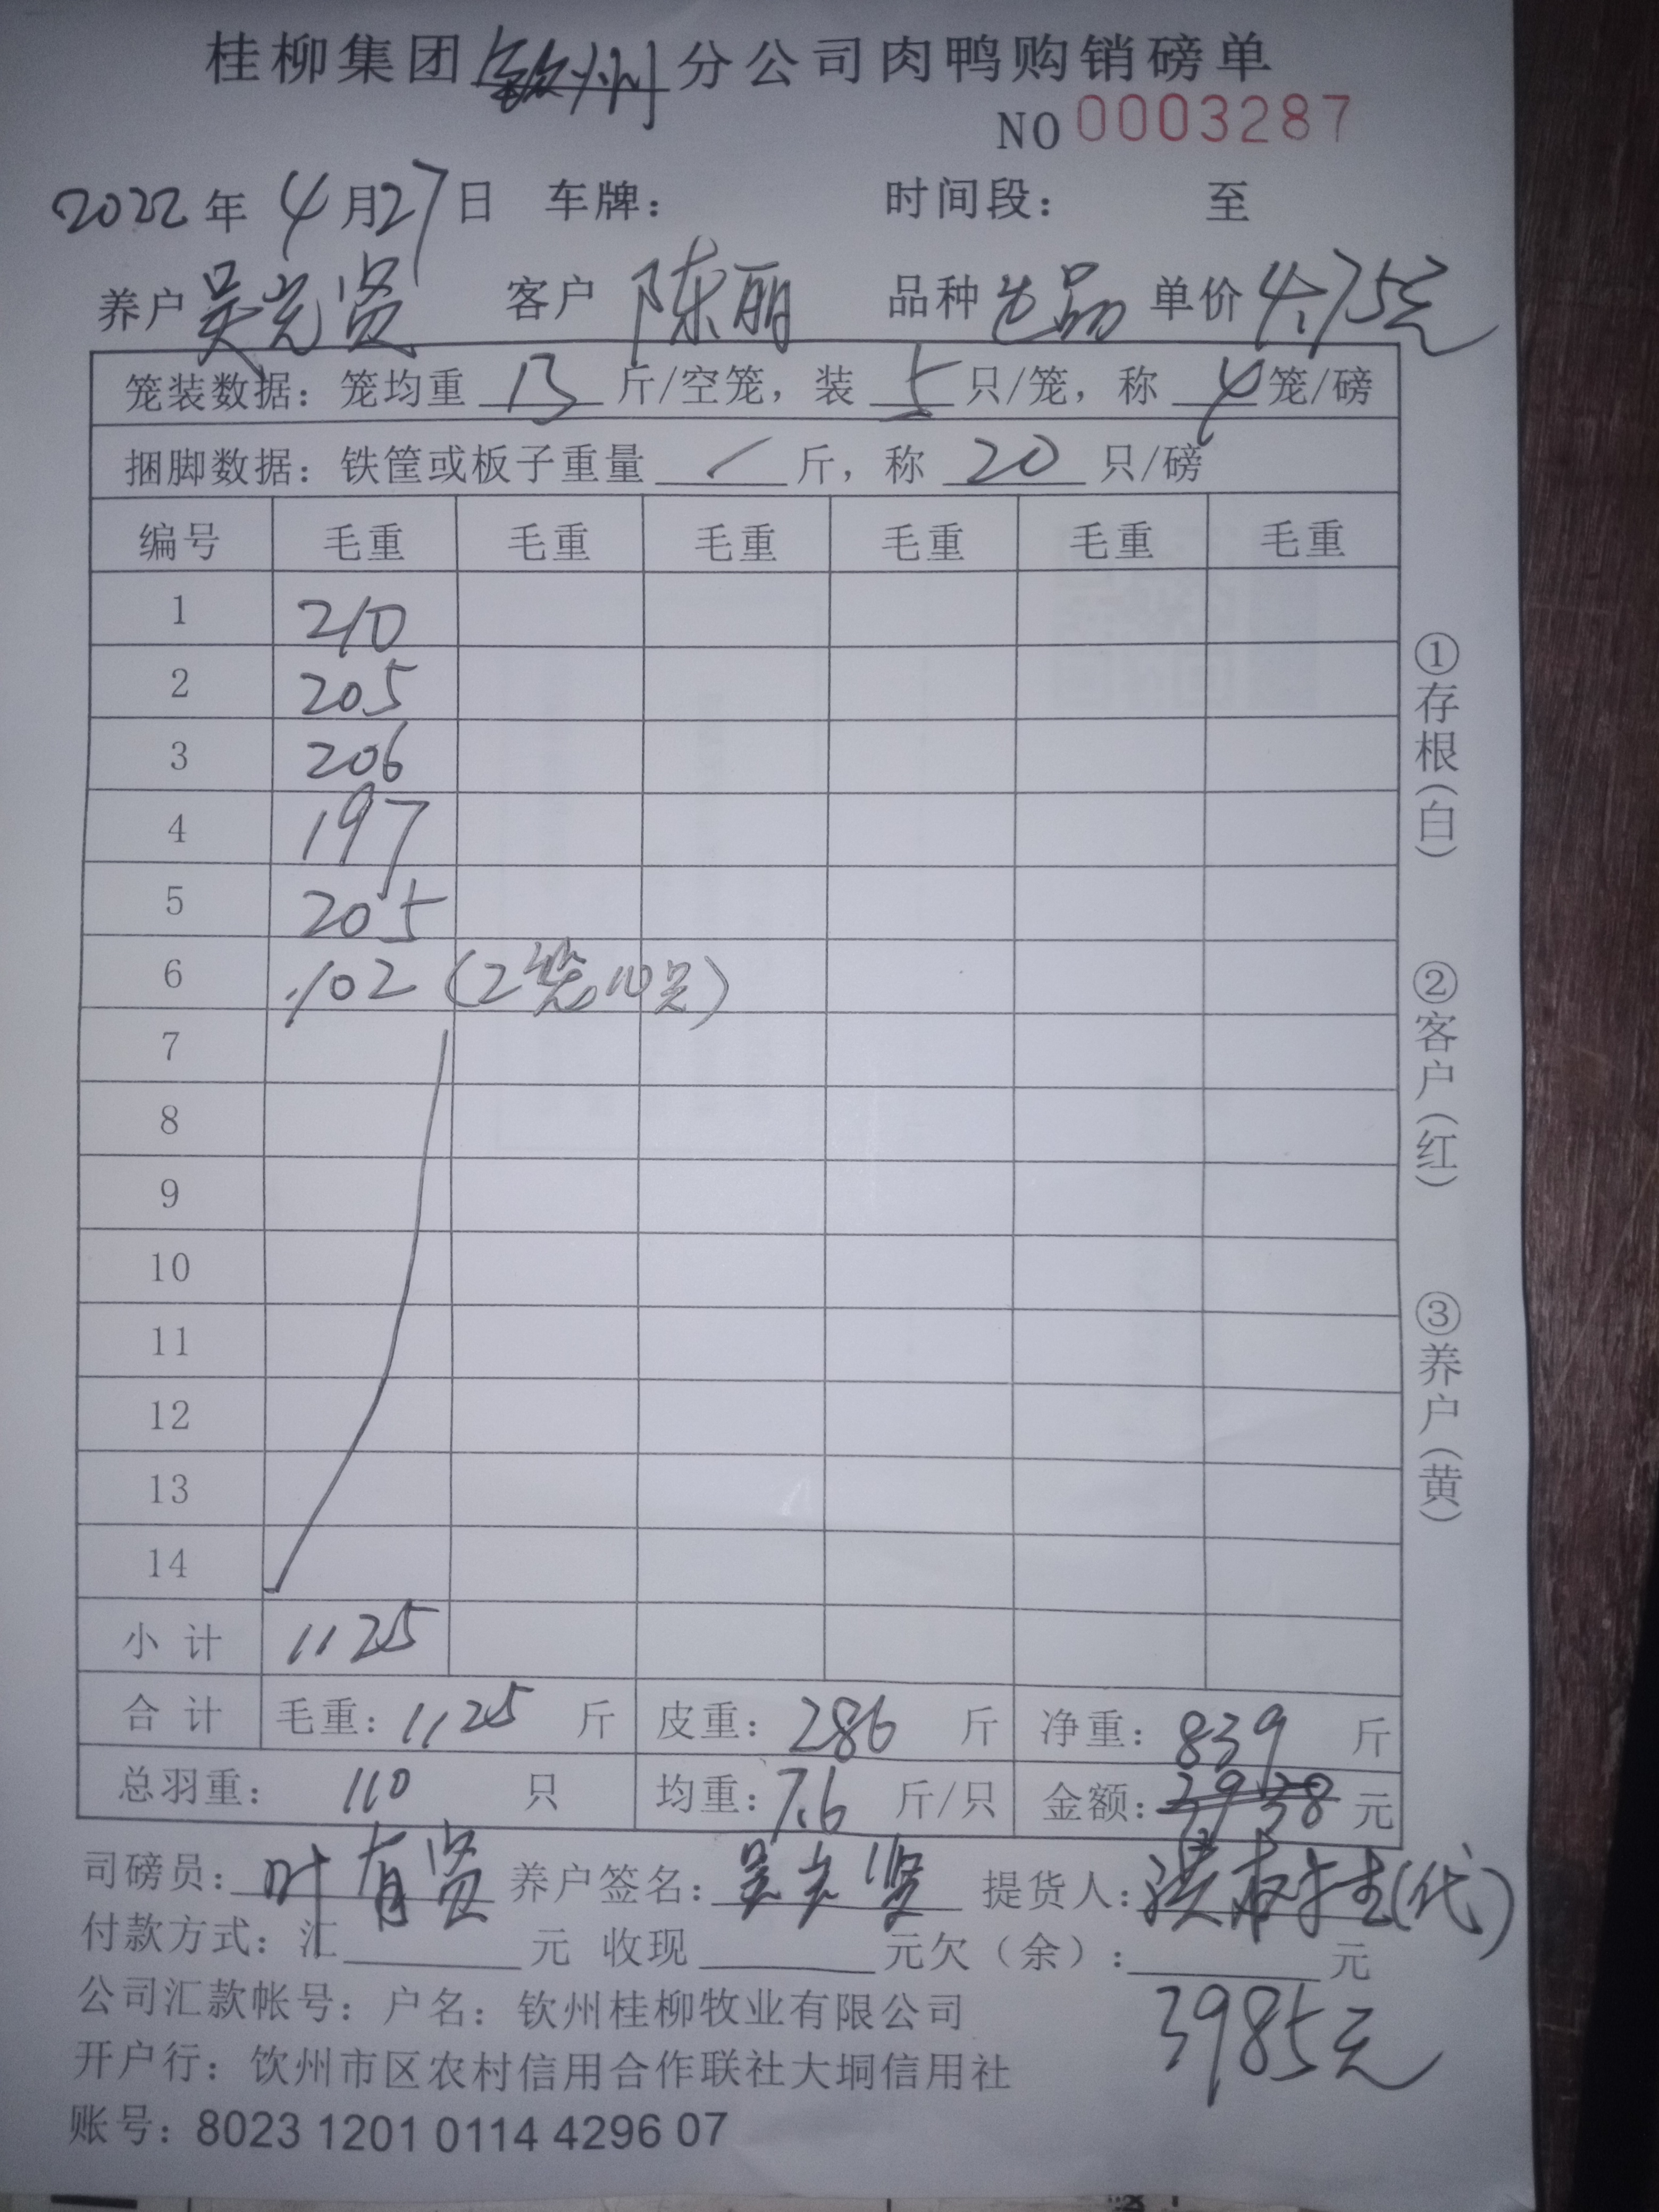 桂柳集团钦州分公司肉鸭购销磅单
NO 0003287
2022年4月27日 车牌： 时间段： 至
养户 吴光贤 客户 陈丽 品种 品 单价 4.75元
笼装数据：笼均重 13 斤/空笼，装 5 只/笼，称 4 笼/磅
捆脚数据：铁筐或板子重量 / 斤，称 20 只/磅
编号 毛重 毛重 毛重 毛重 毛重 毛重
1 210
2 205
3 206
4 197
5 205
6 102（2笼10只）
7
8
9
10
11
12
13
14
小计 1125
合计 毛重：1125 斤 皮重：286 斤 净重：839 斤
总羽重：110 只 均重：7.6 斤/只 金额：3938 元
司磅员：叶有贤 养户签名：吴光贤 提货人：(代)
付款方式：汇 元 收现 元欠（余）： 元
3985元
公司汇款帐号：户名：钦州桂柳牧业有限公司
开户行：钦州市区农村信用合作联社大垌信用社
账号：8023 1201 0114 4296 07
①存根（白）
②客户（红）
③养户（黄）